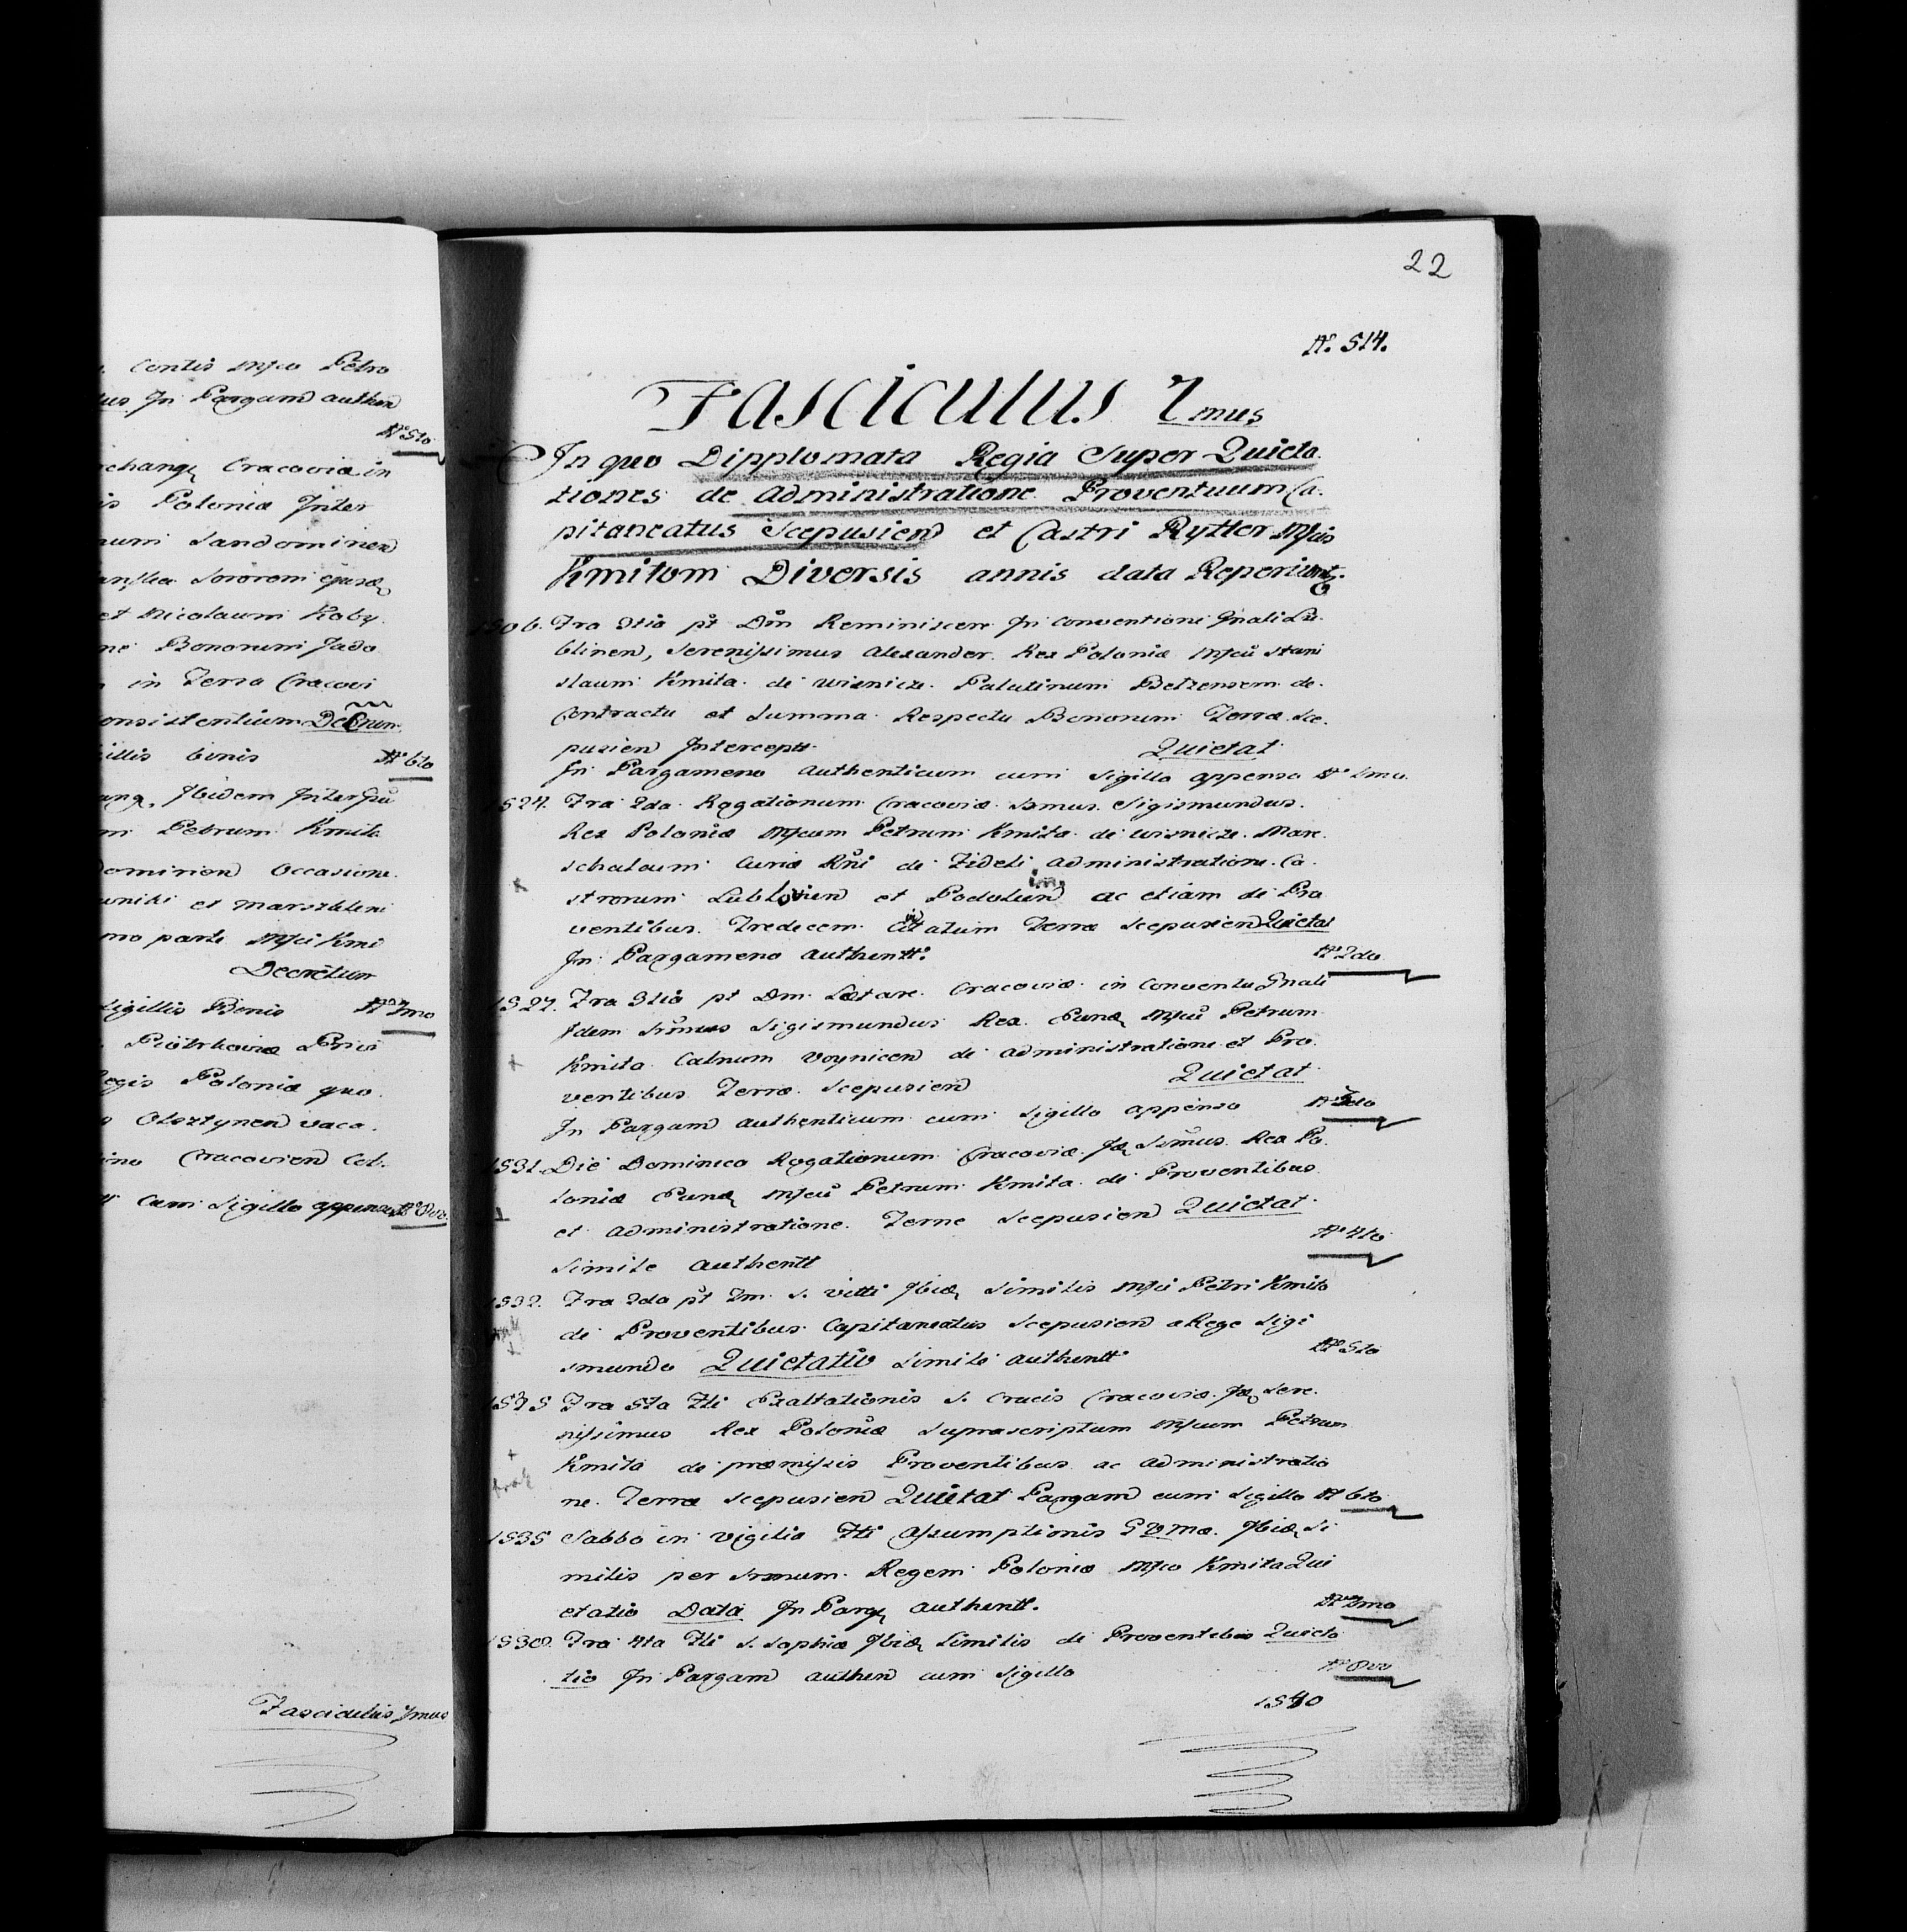 Contis Mfco Petro
In Pargam authen
No 5to
Cracoviæ in
Poloniæ Inter
Sandomirien
Sororem
et Nicolaum Koby
Bonorum Jado
in Terra Cracovi
onsistentium Decretum
illis binis No 6to
Ibidem Inter
Petrum Kmita
Occasione
et
mo parte Mfci Kmi
Decretum
Sigillis Benis No 7mo
Piotrkoviæ
Regis Poloniæ quo
Olsztynen vaca.
Cracovien Cal.
Cum Sigillo appenso No 8vo.
Fasciculus 7mus
22
No. 514.
Fasciculus 7mus
In quo Dipplomata Regia Super Quieta
tiones de Administratione Proventuum Ca.
pitaneatus Scepusien et Castri Rytter Mfcis
Kmitom Diversis annis data Reperiunt.
1506. Fra 3tia pt Dm Reminiscere In Conventione Gnali Lu.
blinen, Serenissimus Alexander Rex Poloniæ Mfcu Stani
slaum Kmita de Wisnicze Palatinum Belzensem de
Contractu et Summa Respectu Bonorum Terræ Sce.
pusien Intercept. Quietat
In Pargameno Authenticum cum Sigillo appenso No 1mo.
1524. Fra 2da Rogationum Cracoviæ Srmus Sigismundus
Rex Poloniæ Mfcum Petrum Kmita de Wisnicze Mare.
schalcum Curiæ Rni de Fideli Administratione Ca.
strorum Lublovien et Podolinien ac etiam de Pro
ventibus Tredecem Civitatum Terræ Scepusien Quietat
In Pargameno Authentt. No 2do
1527. Fra 3tia pt Dm Lætare Cracoviæ in Conventu Gnali
Idem Srmus Sigismundus Rex Eund Mfcu Petrum
Kmita Calnum Voynicen de Administratione et Pro.
ventibus Terræ Scepusien Quietat
In Pargam Authenticum cum Sigillo appenso No 3tio
1531. Die Dominico Rogationum Cracoviæ Id Srmus Rex Po.
loniæ Eund Mfcu Petrum Kmita de Proventibus
et Administratione Terræ Scepusien Quietat
Simile Authentt No 4to
1532. Fra 2da pt Fm S. Vitti Ibid Similis Mfci Petri Kmita
de Proventibus Capitaneatus Scepusien a Rege Sigi
smundo Quietatio Simile Authentt No 5to
1535 Fra 5ta Fti Exaltationis S. Crucis Cracoviæ Id Sere.
nissimus Rex Poloniæ Suprascriptum Mfcum Petrum
Kmita de præmissis Proventibus ac Administratio
ne Terræ Scepusien Quietat Pargam cum Sigillo No 6to
1535 Sabbo in Vigilia Fti Assumptionis Ibid Si
milis per Srmum Regem Poloniæ Mfco Kmita Qui
etatio Data In Parg Authentt. No 7mo
1538. Fra 4ta Fti S. Sophiæ Ibid Similis de Proventibus Quieta
tio In Pargam Authen cum Sigillo No 8vo
1540